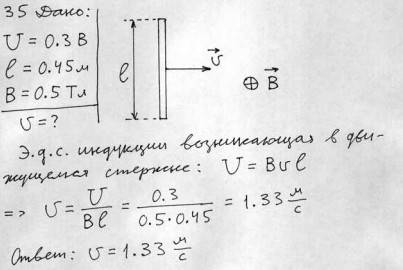 35 Дано:
U = 0.3 В
l = 0.45 м
B = 0.5 Тл
v = ?
l
v⃗
⊕ B⃗
Э.д.с. индукции возникающая в дви-
жущемся стержне: U = Bvl
=> v = U/Bl = 0.3/0.5·0.45 = 1.33 м/с
Ответ: v = 1.33 м/с